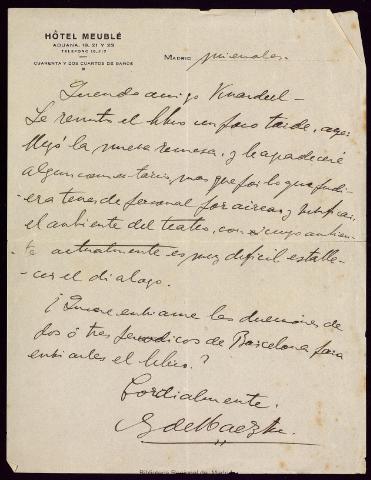 HÔTEL MEUBLÉ
ADUANA, 19, 21 Y 23
TELEFONO
CUARENTA Y DOS CUARTOS DE BAÑOS
MADRID miercoles.
Querido amigo
Le remito el libro un poco tarde, aqui
llegó la nueva remesa, y le agradeceré
algun comentario, mas que por lo que pudi-
era tener de personal por airear y
el ambiente del teatro, con cuyo ambien-
te actualmente es muy dificil estable-
cer el dialogo.
¿Quiere enviarme las direcciones de
dos ó tres periodicos de Barcelona para
enviarles el libro?
Cordialmente.
G de Maeztu
Biblioteca Regional de Madrid